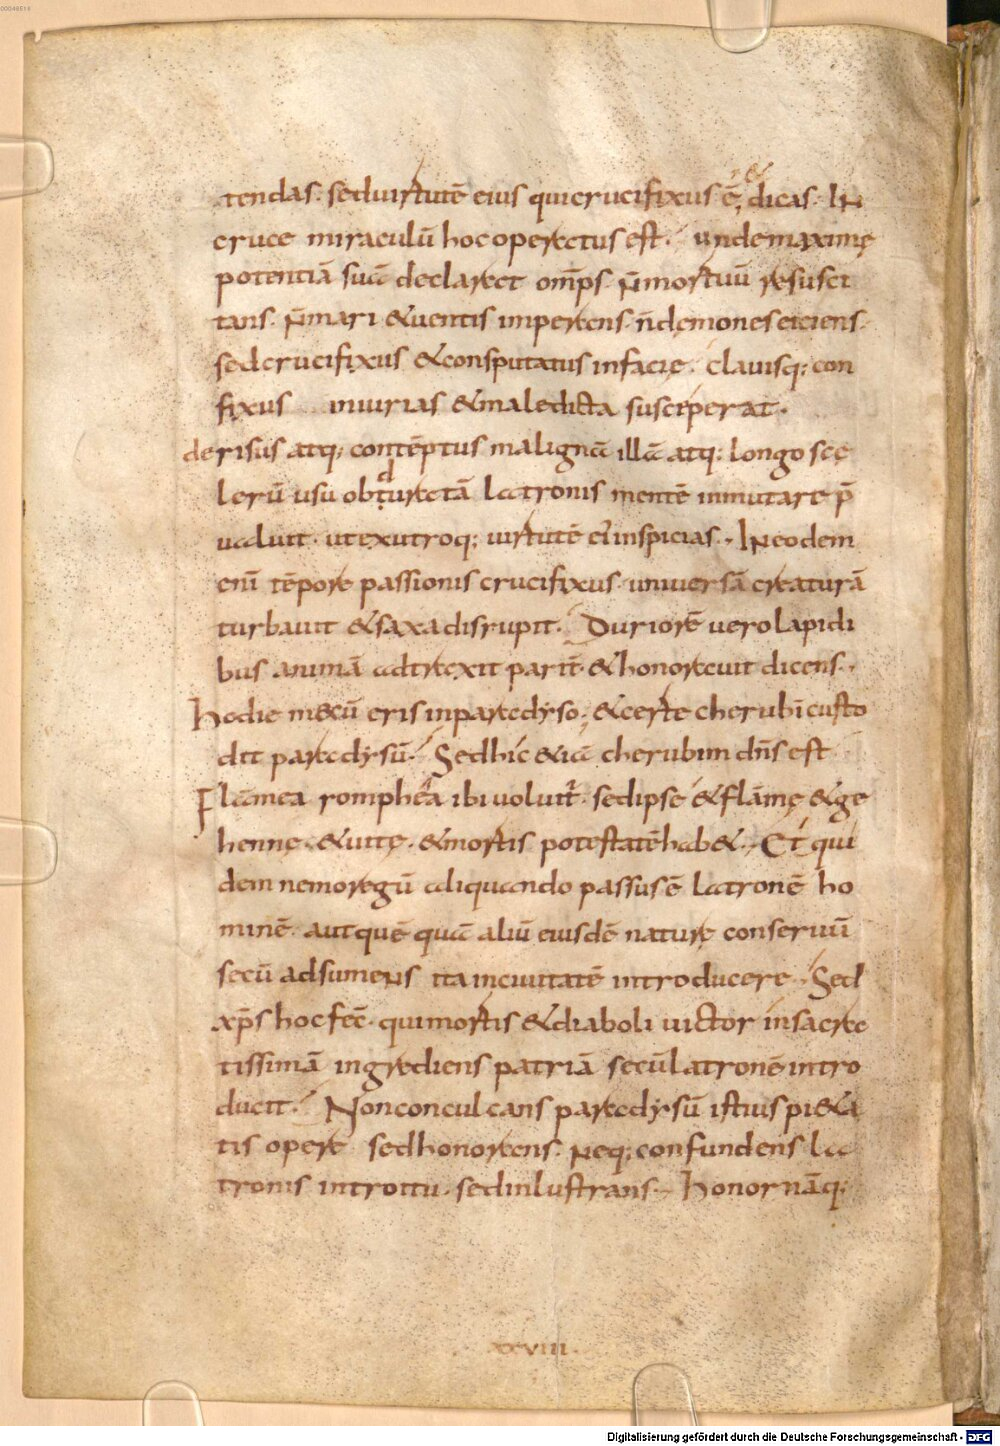 00048514
tendas. sed uirtutē eius qui crucifixus ē, dicas. IN
cruce miraculū hoc operatus est. unde maxime
potentiā suā declarat omp̄s. n̄ mortuū resusci
tans. n̄ mari & uentis imperans. n̄ demones eiciens.
sed crucifixus & consputatus in facie. clauisq; con
fixus iniurias & maledicta susceperat.
derisus atq; contēptus malignā illā atq; longo sce
lerū usu obturatā latronis mentē inmutare p̄
ualuit. ut ex utroq; uirtutē ei inspicias. IN eodem
enī tēpore passionis crucifixus uniuersā creaturā
turbauit & saxa disrupit. Duriorē uero lapidi
bus animā adtraxit parit̄ & honorauit dicens.
Hodie mecū eris in paradyso; & certe cherubī custo
dit paradysū. Sed hic & iā cherubim dn̄s est
Flamea romphea ibi uoluit̄. sed ipse & flāme & ge
henne. & uite. & mortis potestatē hab&. Et qui
dem nemo regū aliquando passus ē latronē ho
minē. aut quē quā aliū eiusdē nature conseruū
secū adsumens ita in ciuitatē introducere. Sed
xp̄s hoc fec̄. qui mortis & diaboli uictor in sacra
tissimā ingrediens patriā secū latronē intro
ducit. Non conculcans paradysū istius pi&a
tis opere sed honorans. Neq; confundens la
tronis introitu. sed inlustrans. Honor nāq;
xxviii.
Digitalisierung gefördert durch die Deutsche Forschungsgemeinschaft - DFG